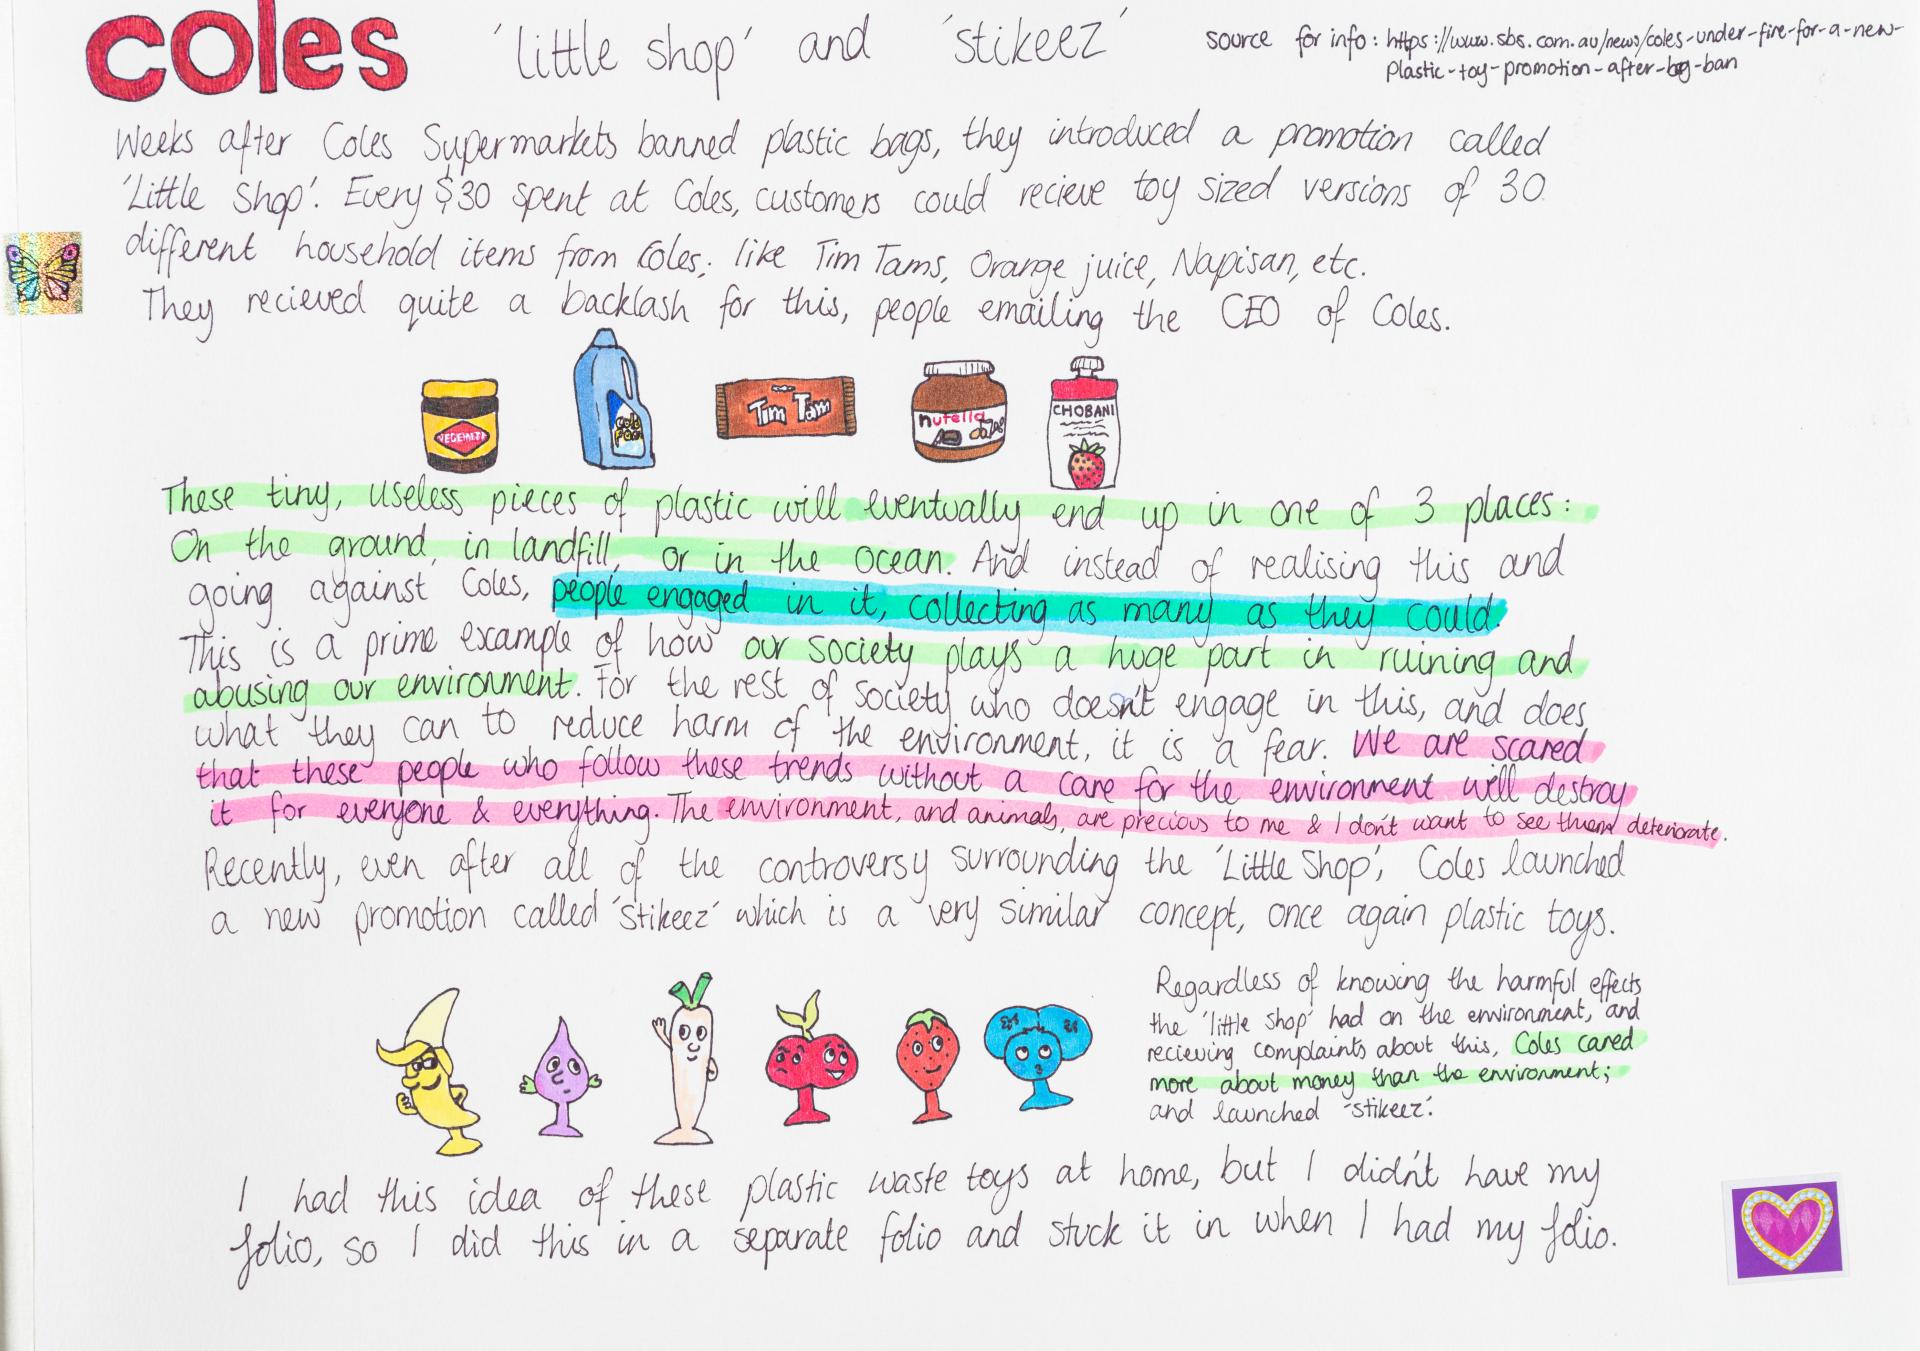 coles 'little shop' and 'stikeez'
source for info: https://www.sbs.com.au/news/coles-under-fire-for-a-new-
plastic-toy-promotion-after-bag-ban
Weeks after Coles Supermarkets banned plastic bags, they introduced a promotion called
'Little Shop'. Every $30 spent at Coles, customers could recieve toy sized versions of 30
different household items from Coles; like Tim Tams, Orange juice, Napisan, etc.
They recieved quite a backlash for this, people emailing the CEO of Coles.
VEGEMITE
cold
power
Tim Tam
nutella
CHOBANI
These tiny, useless pieces of plastic will eventually end up in one of 3 places:
On the ground, in landfill, or in the ocean. And instead of realising this and
going against Coles, people engaged in it, collecting as many as they could.
This is a prime example of how our society plays a huge part in ruining and
abusing our environment. For the rest of society who doesn't engage in this, and does
what they can to reduce harm of the environment, it is a fear. We are scared
that these people who follow these trends without a care for the environment will destroy
it for everyone & everything. The environment, and animals, are precious to me & I don't want to see them deteriorate.
Recently, even after all of the controversy surrounding the 'Little Shop', Coles launched
a new promotion called 'stikeez' which is a very similar concept, once again plastic toys.
Regardless of knowing the harmful effects
the 'little shop' had on the environment, and
recieving complaints about this, Coles cared
more about money than the environment;
and launched 'stikeez'.
I had this idea of these plastic waste toys at home, but I didn't have my
folio, so I did this in a separate folio and stuck it in when I had my folio.